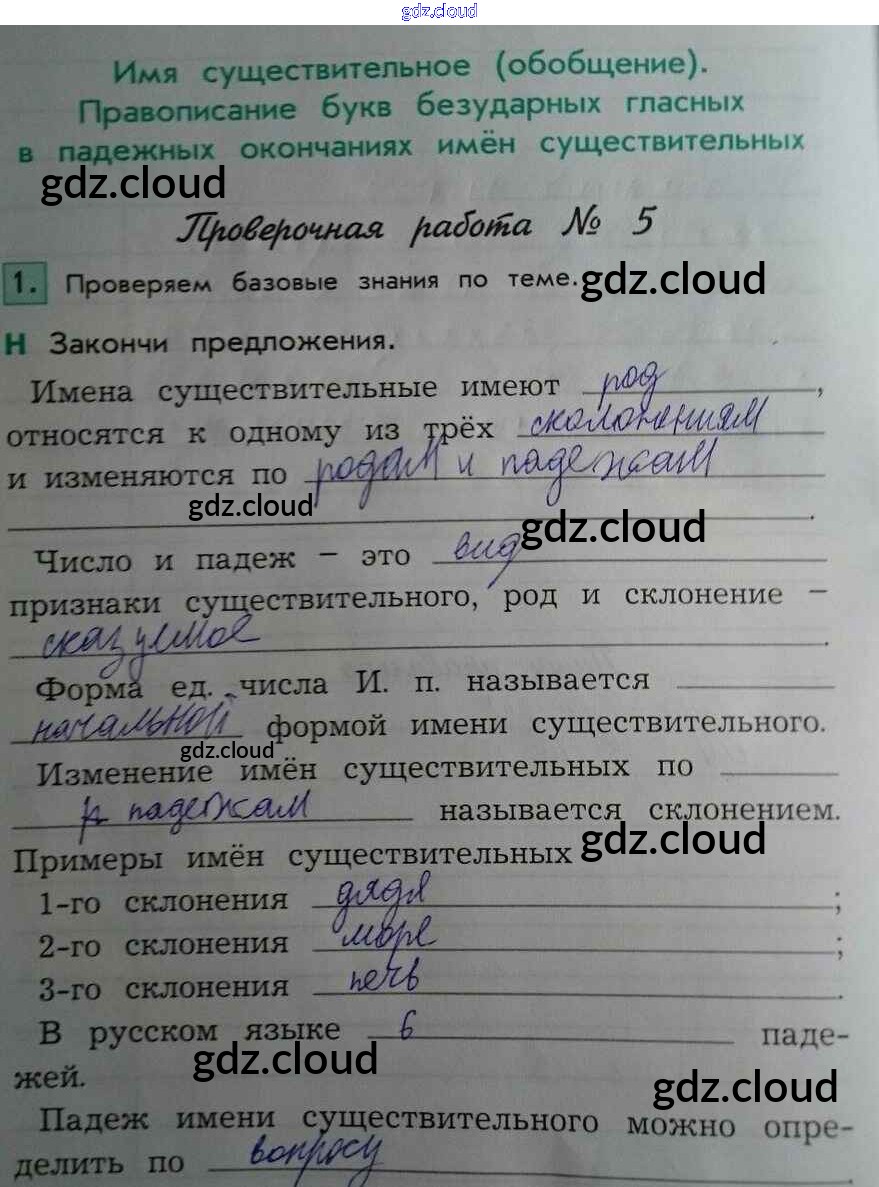 gdz.cloud
Имя существительное (обобщение).
Правописание букв безударных гласных
в падежных окончаниях имён существительных
gdz.cloud
Проверочная работа № 5
1. Проверяем базовые знания по теме. gdz.cloud
Н Закончи предложения.
Имена существительные имеют род ,
относятся к одному из трёх сколонениям
и изменяются по родам и падежам
gdz.cloud gdz.cloud .
Число и падеж – это вид
признаки существительного, род и склонение –
сказуемое .
Форма ед. числа И. п. называется
начальной формой имени существительного.
gdz.cloud
Изменение имён существительных по
падежам называется склонением.
Примеры имён существительных gdz.cloud
1-го склонения дядя ;
2-го склонения море ;
3-го склонения печь .
В русском языке 6 паде-
жей. gdz.cloud gdz.cloud
Падеж имени существительного можно опре-
делить по вопросу .